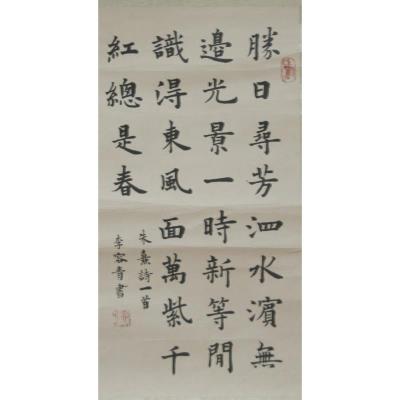 勝日尋芳泗水濱無
邊光景一時新等閒
識淂東風面萬紫千
紅總是春
朱熹詩一首
李容青書